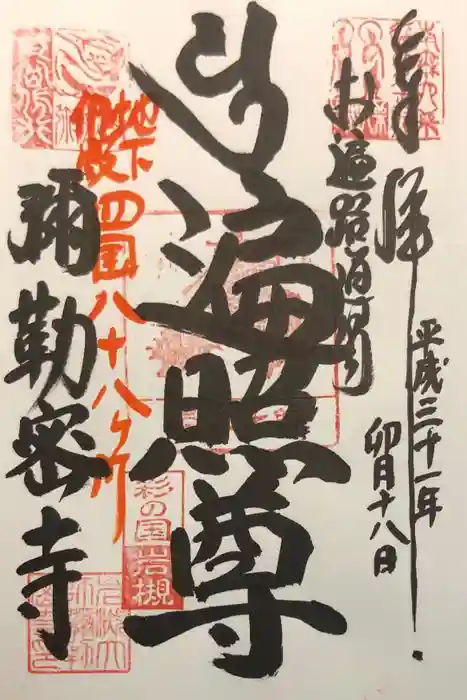 奉拝
平成三十一年
卯月十八日
お遍路道場
遍照尊
地下
仏殿
四国八十八ヶ所
彌勒密寺
彩の国岩槻